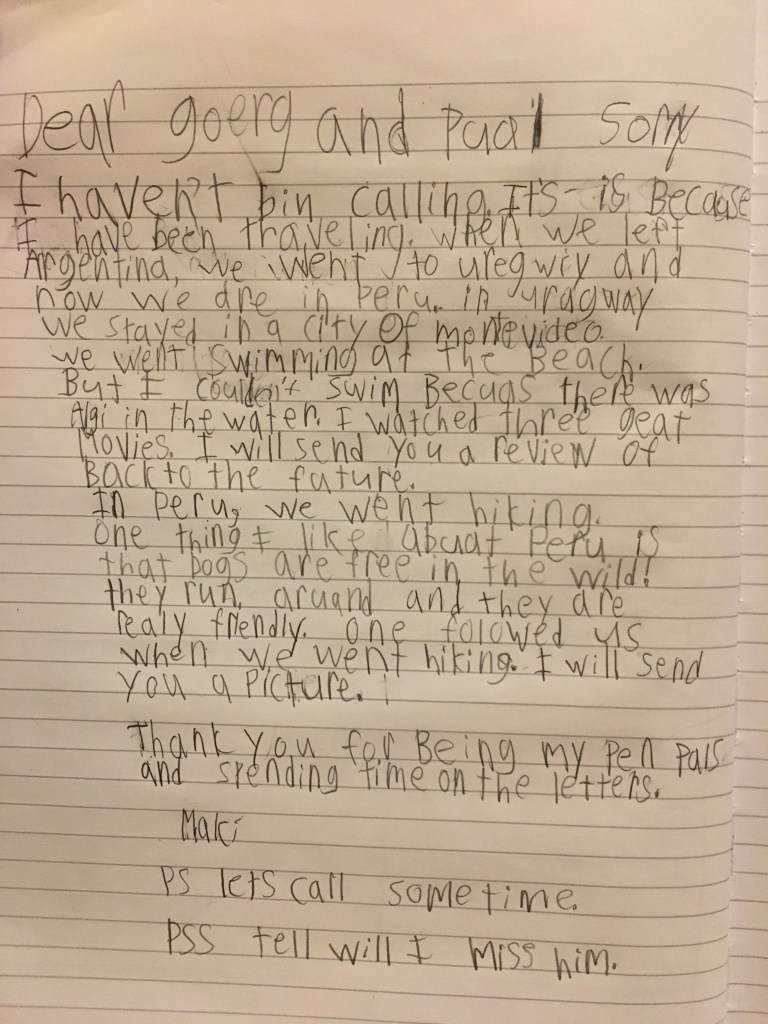 Dear goerg and Paal Sorry
I haven't bin calling. It's is Because
I have been traveling. When we left
Argentina, we went to uregwiy and
now we are in Peru. in uragway
we stayed in a city Of montevideo.
we went swimming at the Beach.
But I couldn't swim Becuas there was
Algi in the water. I watched three geat
Movies. I will send you a review of
Back to the future.
In Peru, we went hiking.
One thing I like abuat Peru is
that Dogs are free in the wild!
they run. aruand and they are
realy friendly. One folowed us
when we went hiking. I will send
you a Picture.
Thank you for Being my pen pals
and spending time on the letters.
Maki
PS lets call sometime.
PSS tell will I miss him.